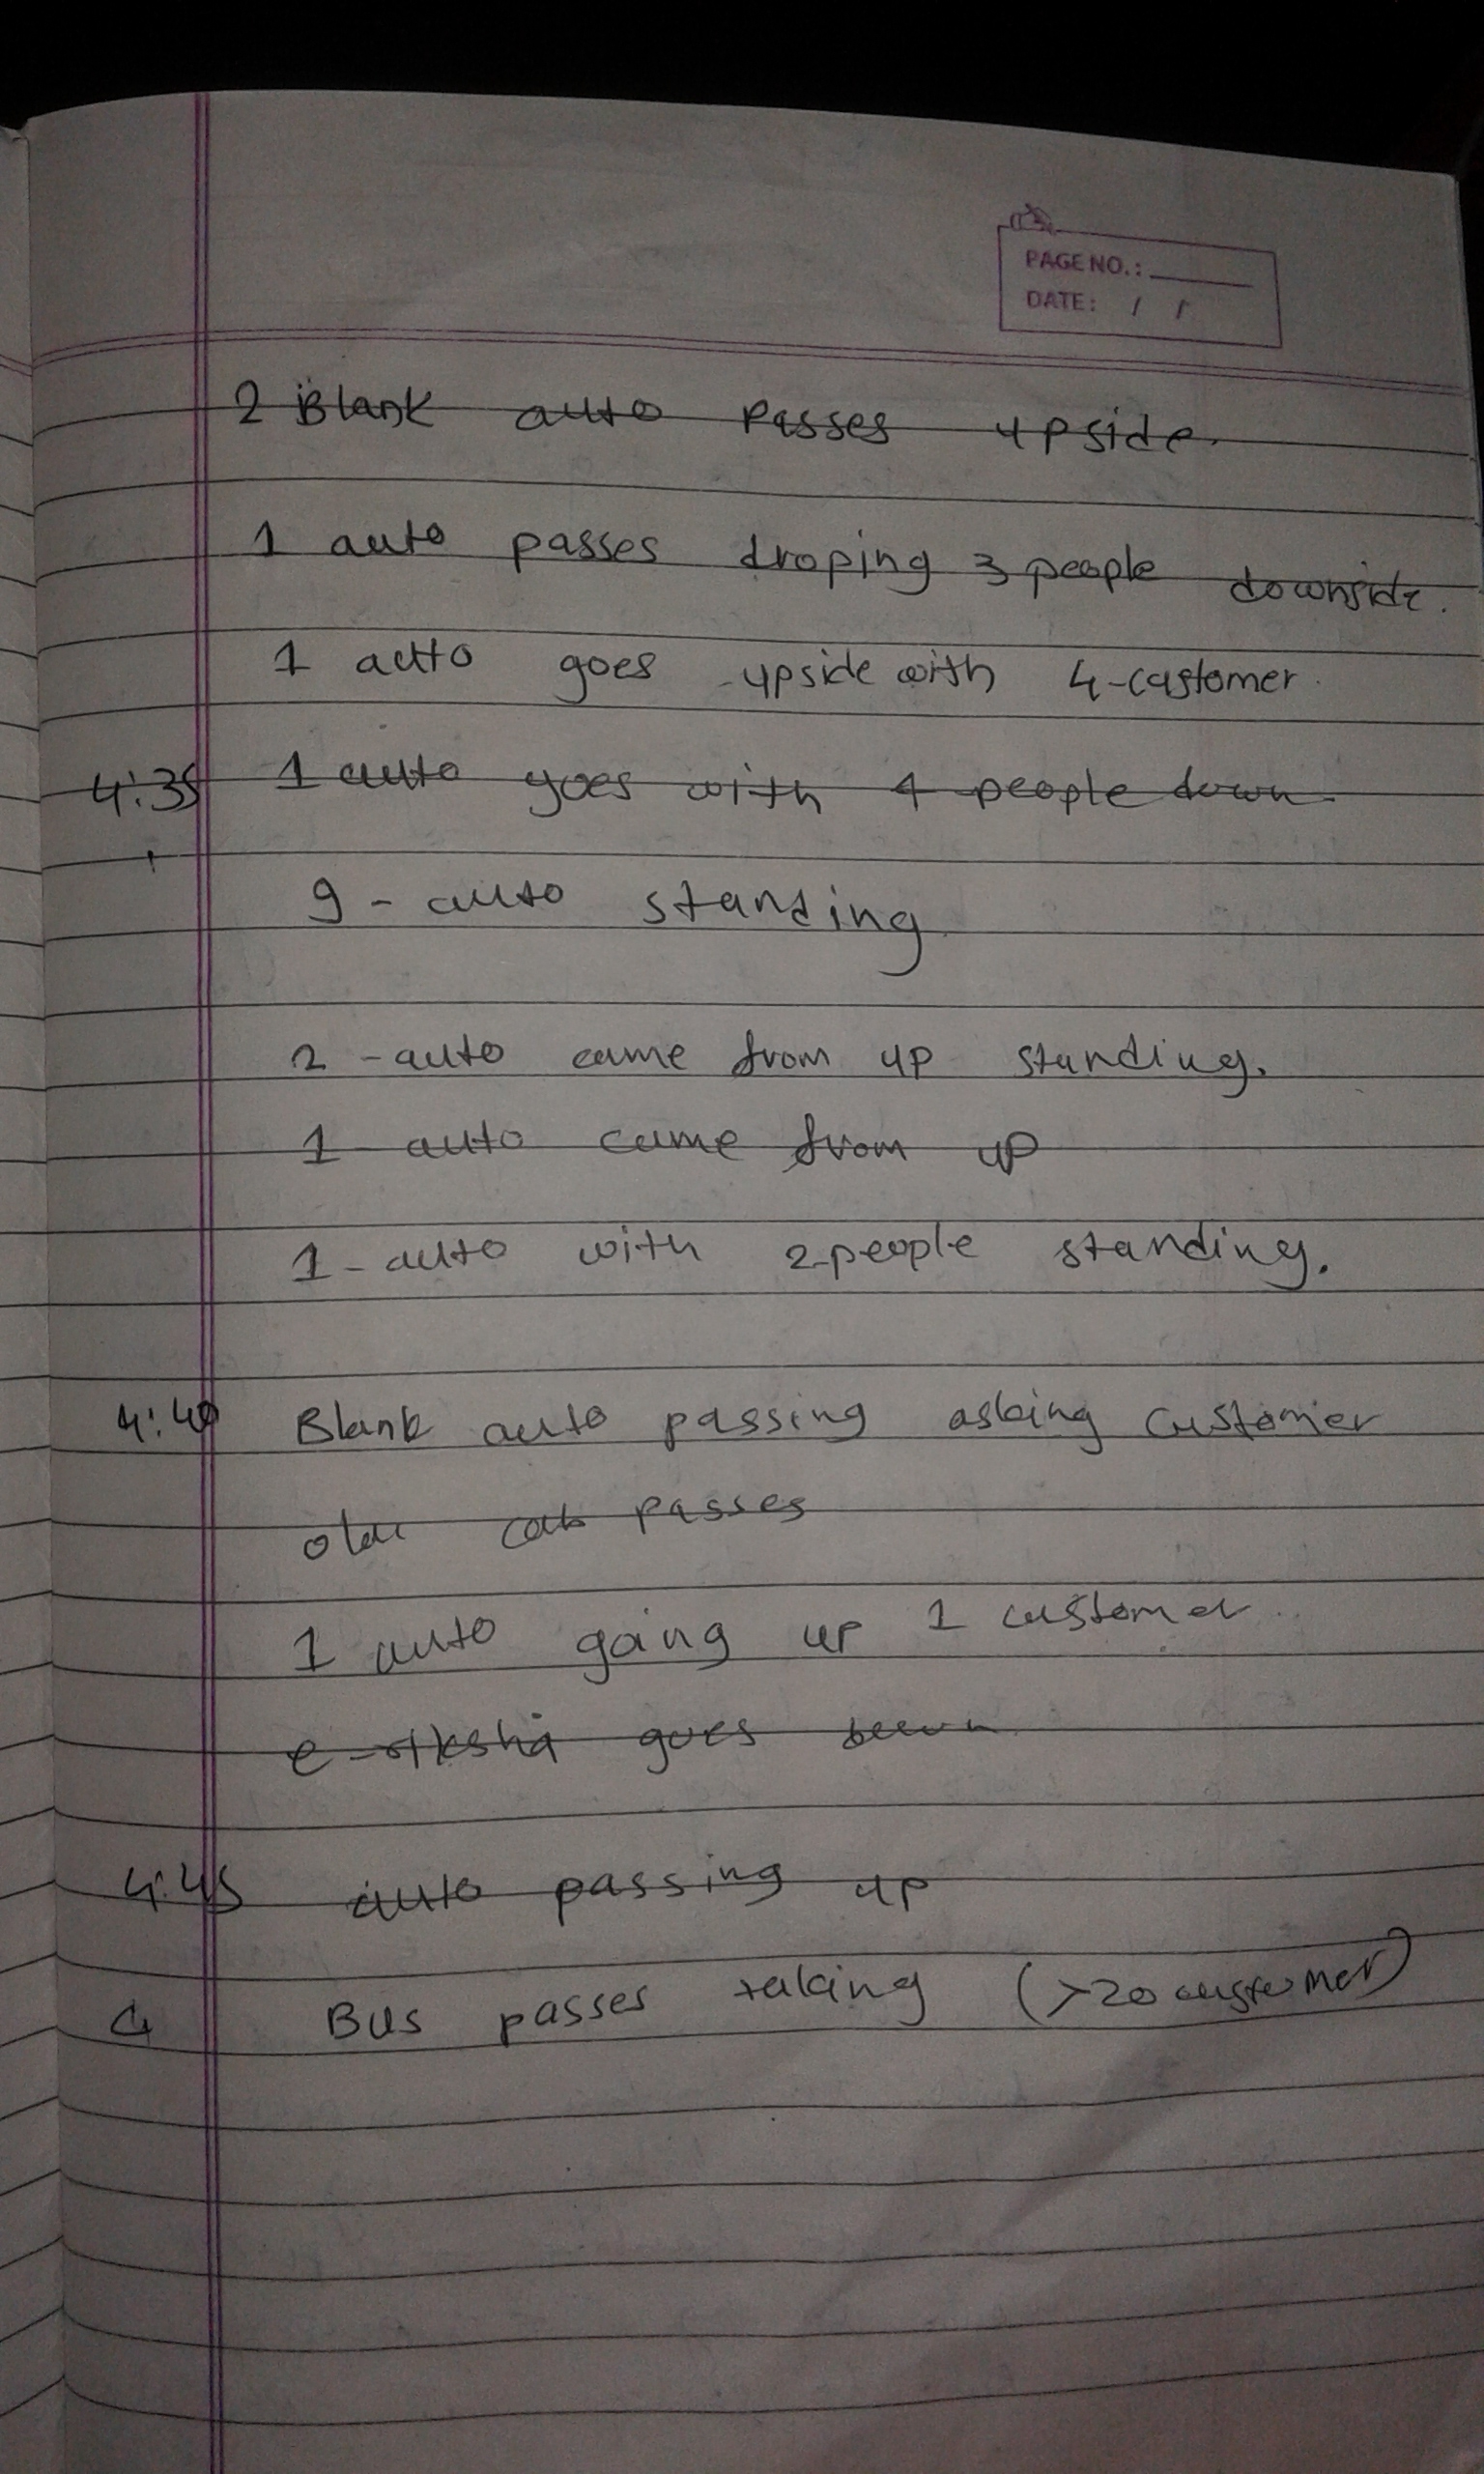 PAGE NO.:
DATE: / /
2 Blank auto Passes upside.
1 auto passes droping 3 people downside.
1 auto goes upside with 4-customer.
4:35 1 auto goes with 4 people down
9 - auto standing
2 - auto came from up standing.
1 auto came from up
1 - auto with 2 people standing.
4:40 Blank auto passing asking customer
cab passes
1 auto going up 1 customer
goes
4:45 auto passing up
Bus passes taking (>20 customer)